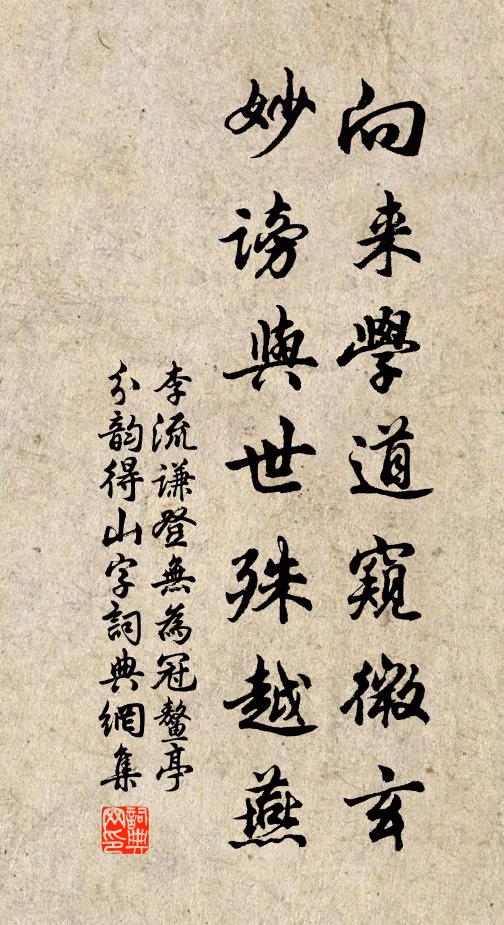 向来學道窺微玄
妙謗與世殊越燕
李流謙登無為冠鰲亭
分韵得山字詞典網集
詞典
网印